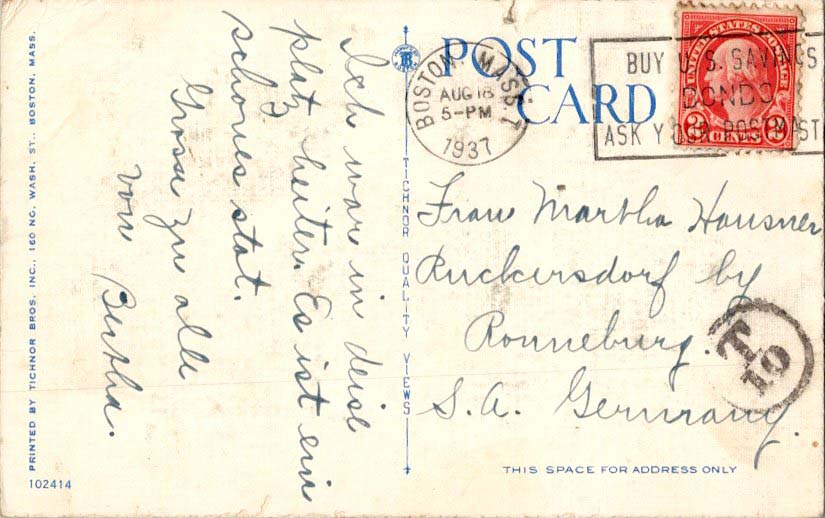 POST CARD
BOSTON MASS 7
AUG 18
5-PM
1937
BUY U.S. SAVINGS
BONDS
ASK YOUR POSTMAST
UNITED STATES POSTAGE
2 2
Ich war in deise
platz heiter. Es ist ein
schones stat.
Grose zu alle
von Bertha.
Frau Martha Hausner
Ruckersdorf by
Ronneburg.
S.A. Germany.
T.
10
TICHNOR QUALITY VIEWS
THIS SPACE FOR ADDRESS ONLY
PRINTED BY TICHNOR BROS. INC., 160 NO. WASH. ST., BOSTON, MASS.
102414